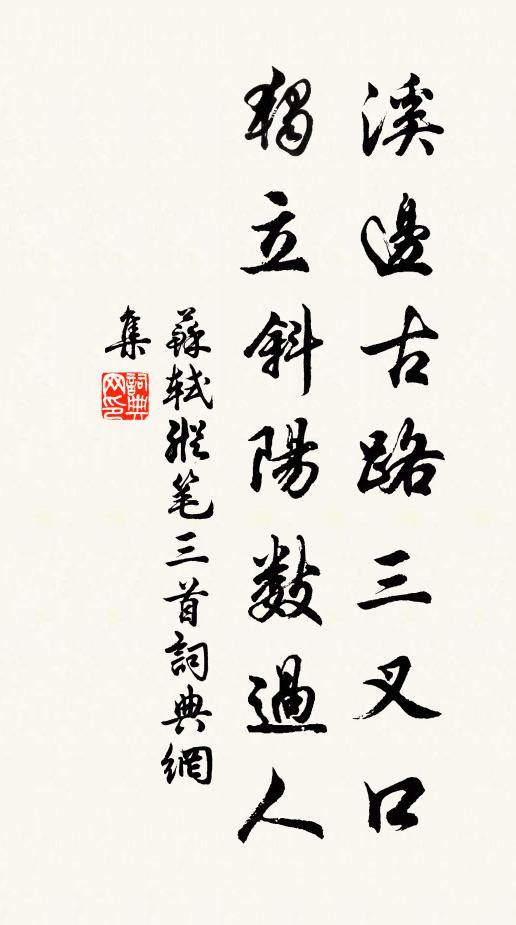 溪邊古路三叉口
獨立斜陽數過人
蘇軾縱笔三首詞典網
集
詞典
网印